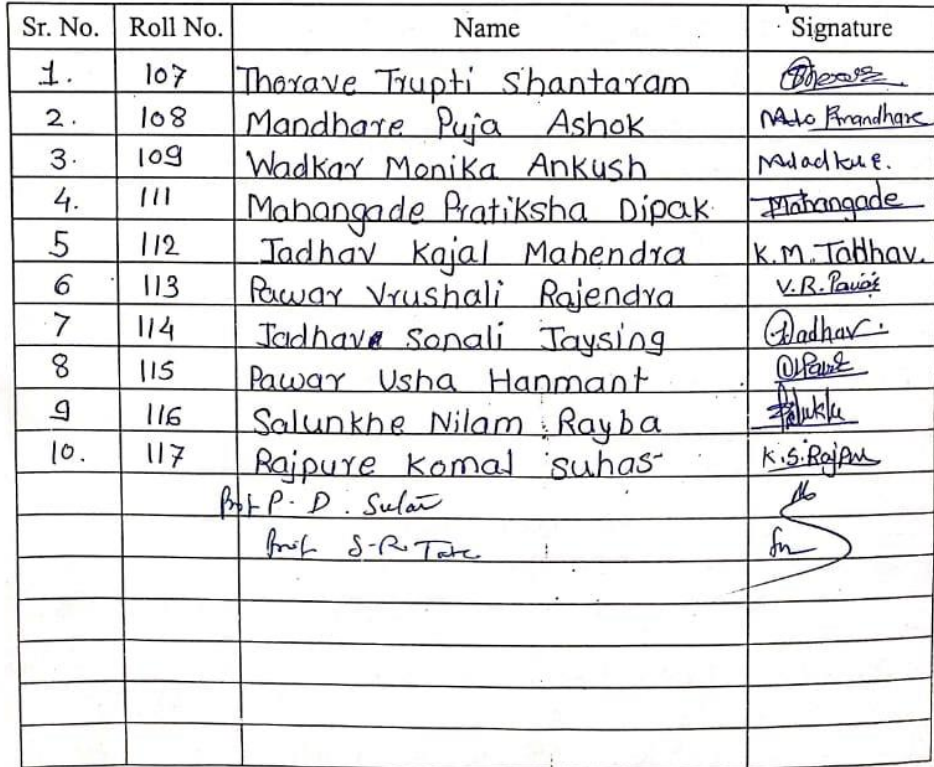 Sr. No. Roll No. Name Signature
1. 107 Thorave Trupti Shantaram
2. 108 Mandhare Puja Ashok
3. 109 Wadkar Monika Ankush
4. 111 Mahangade Pratiksha Dipak Mahangade
5 112 Jadhav Kajal Mahendra K.M. Jadhav.
6 113 Pawar Vrushali Rajendra V.R. Pawar
7 114 Jadhav Sonali Jaysing Jadhav
8 115 Pawar Usha Hanmant
9 116 Salunkhe Nilam Rayba
10. 117 Rajpure Komal Suhas K.S. Rajpure
Prof P. D.
Prof S-R. Tate